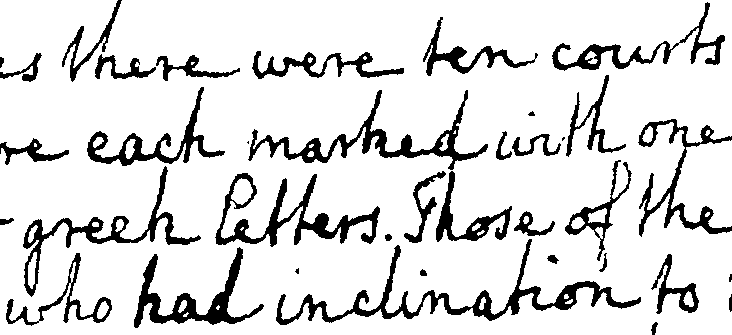 es there were ten courts
re each marked with one
greek letters. Those of the
who had inclination to